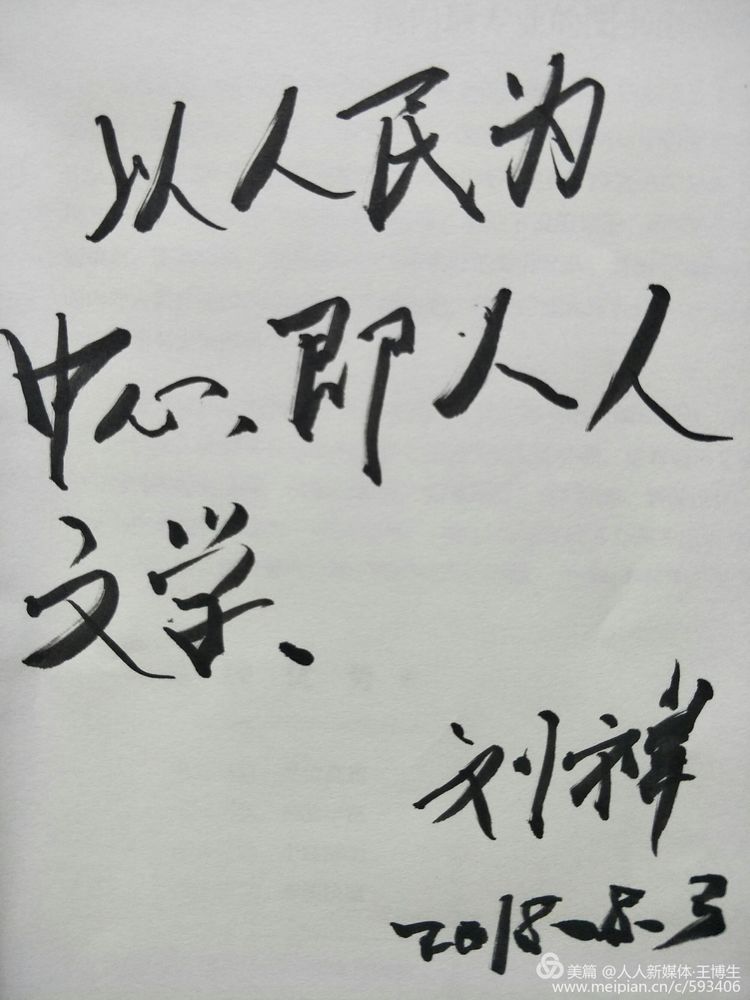 以人民为
中心、即人人
文学、
刘祥
2018.8.3
美篇 @人人新媒体·王博生
www.meipian.cn/c/593406